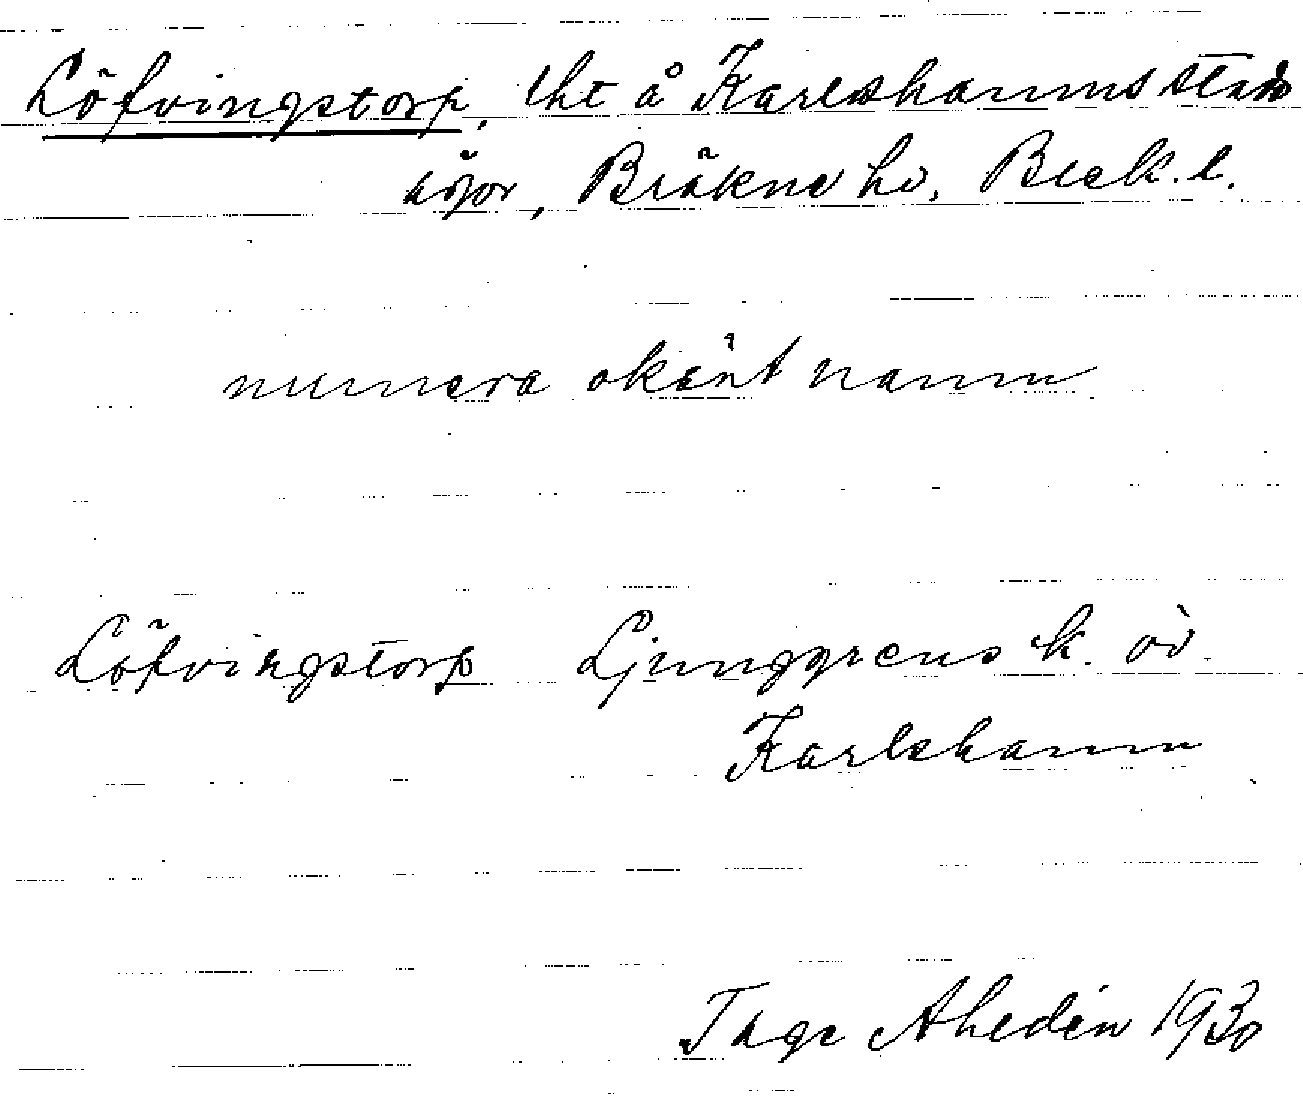 Löfvingstorp, lht å Karlshamns stads
ägor, Bräkne hd, Blek. l.
numera okänt namn
Löfvingstorp Ljunggrens k. öv.
Karlshamn
Tage Ahedén 1930